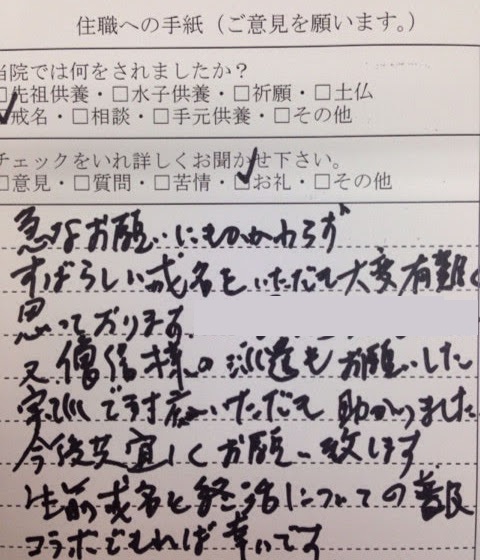 住職への手紙(ご意見を願います。)
当院では何をされましたか?
□先祖供養・□水子供養・□祈願・□土仏
□戒名・□相談・□手元供養・□その他
チェックをいれ詳しくお聞かせ下さい。
□意見・□質問・□苦情・□お礼・□その他
急なお願いにもかかわらず
すばらしい戒名をいただき大変有難く
思っております。
又 僧侶様の 派遣もお願いした
で対応いただき 助かりました
今後共宜しくお願い致します
生前戒名と終活についての普及
コラボできれば幸いです